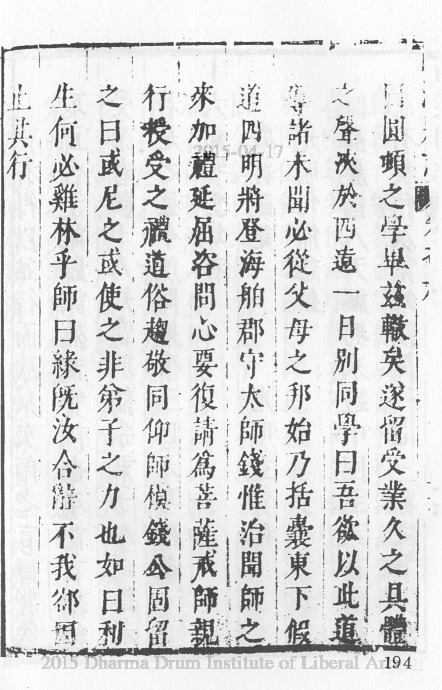 圓頓之學畢茲轍矣遂留受業久之具體
之聲浹於四遠一日別同學曰吾欲以此道
導諸未聞必從父母之邦始乃括囊東下假
道四明將登海舶郡守太師錢惟治聞師之
來加禮延屈咨問心要復請爲菩薩戒師親
行授受之禮道俗趨敬同仰師模錢公固留
之曰或尼之或使之非弟子之力也如曰利
生何必雞林乎師曰緣旣汝合辭不我卻因
止其行
2015-04-17
194
2015 Dharma Drum Institute of Liberal Arts